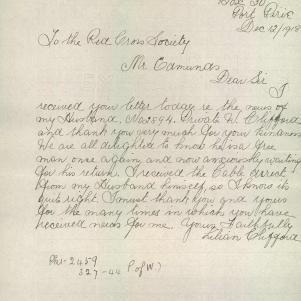 Box 30
Port Pirie
Dec 12/1918
To the Red Cross Society
Mr Edmunds
Dear Sir I
received your letter today re the news of
my Husband, No 2594. Private H Clifford
and thank you very much for your kindness
We are all delighted to know he is a free
man once again, and now anxiously waiting
for his return. I received the Cable direct
from my Husband himself, so I know its
quite right. I must thank you and yours
for the many times in which you have
received news for me. Yours Faithfully
Lilian Clifford
2459
327-44 P of W.)